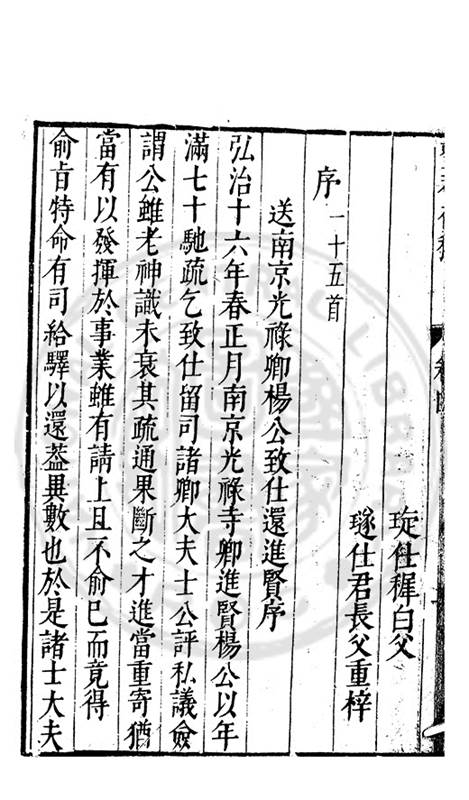 琁仕穉白父
璲仕君長父重梓
序 一十五首
送南京光祿卿楊公致仕還進賢序
弘治十六年春正月南京光祿寺卿進賢楊公以年
滿七十馳疏乞致仕留司諸卿大夫士公評私議僉
謂公雖老神識未衰其疏通果斷之才進當重寄猶
當有以發揮於事業雖有請上且不俞已而竟得
俞旨特命有司給驛以還葢異數也於是諸士大夫